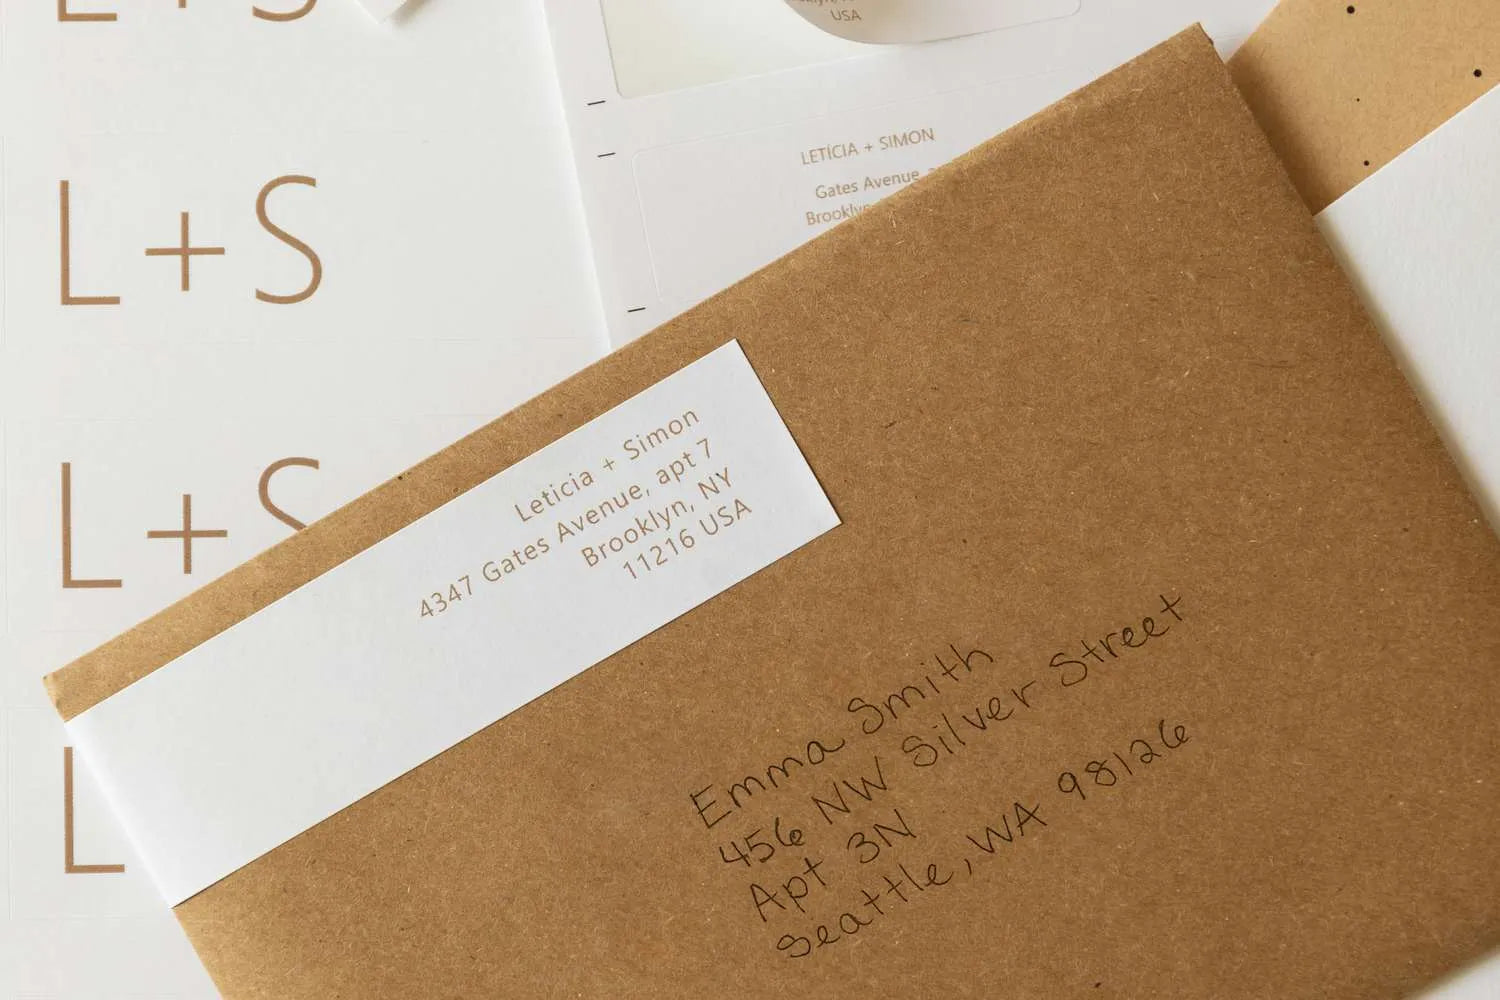 L+S
L+S
USA
LETÍCIA + SIMON
Gates Avenue,
Brooklyn
L+S
Leticia + Simon
4347 Gates Avenue, apt 7
Brooklyn, NY
11216 USA
L
Emma Smith
456 NW Silver Street
Apt 3N
Seattle, WA 98126